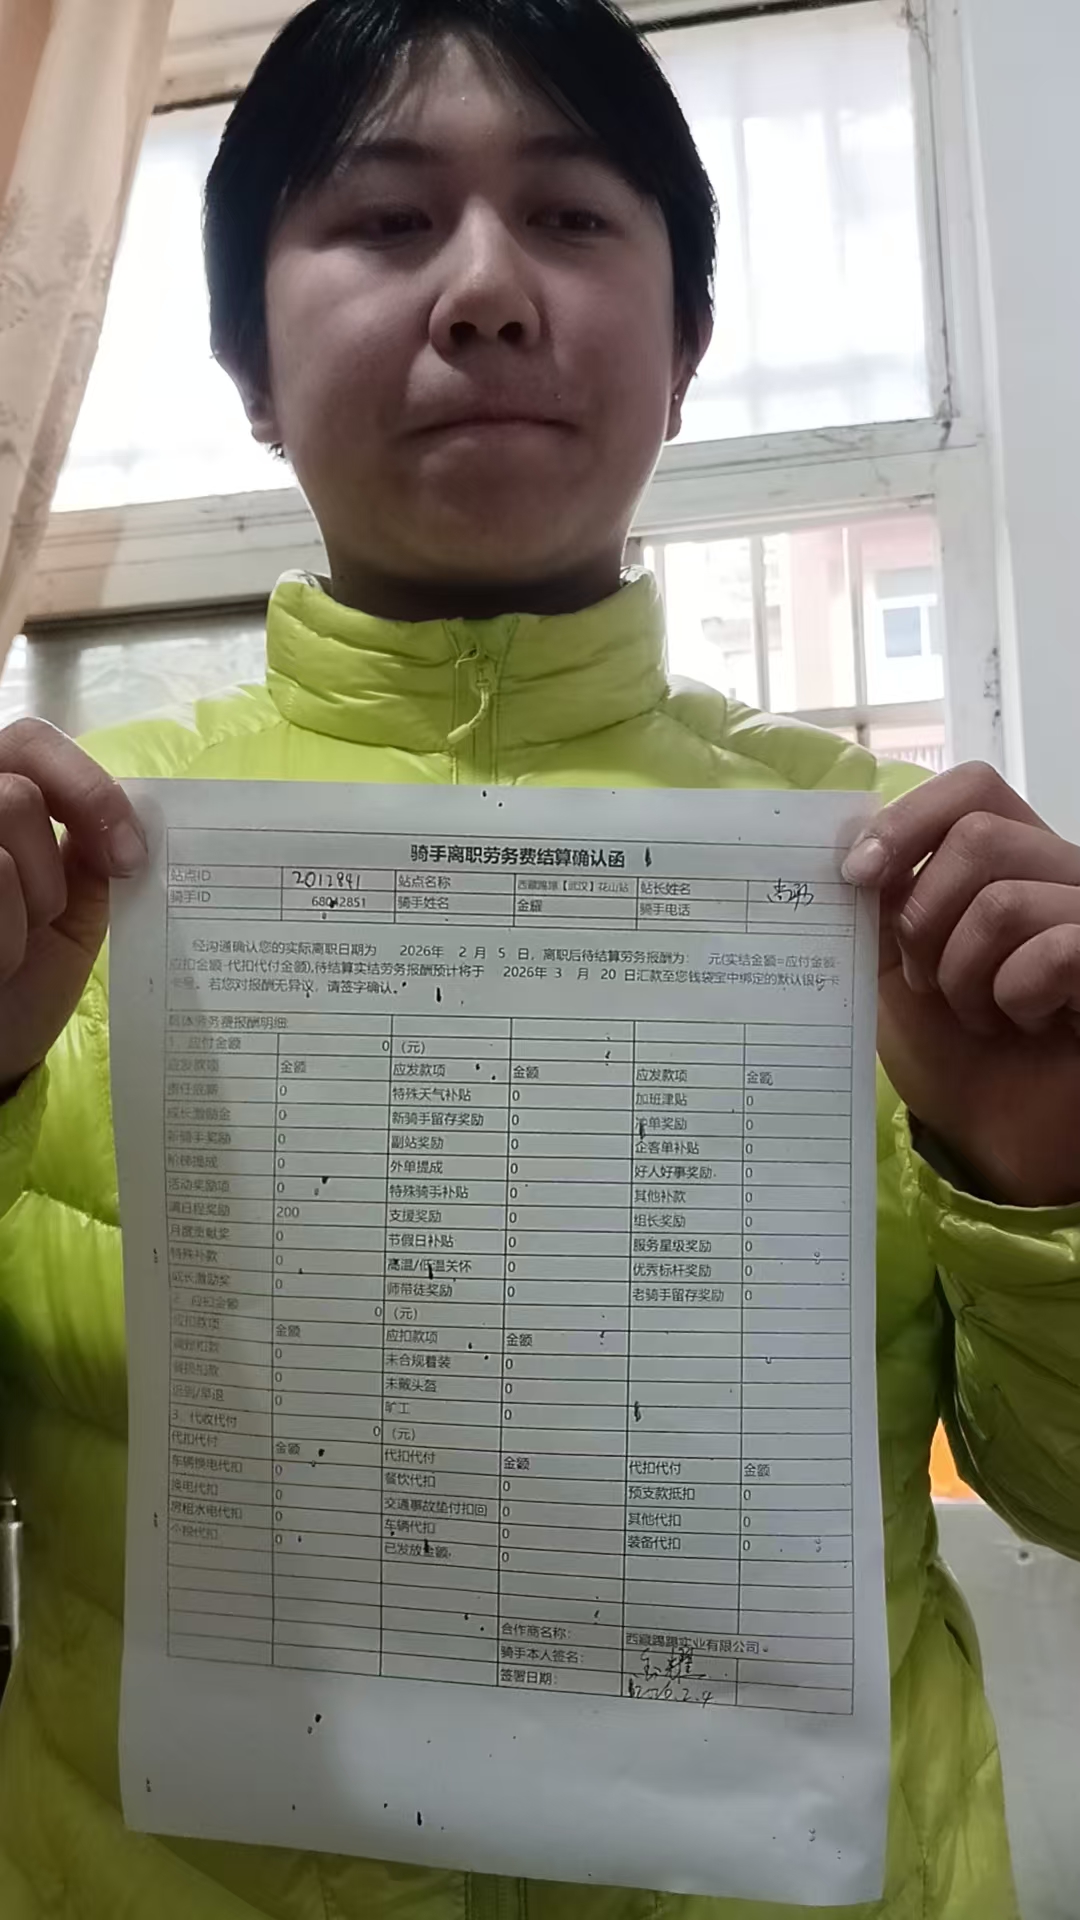 骑手离职劳务费结算确认函
站点ID 2012891 站点名称 西藏踢踢【武汉】花山站 站长姓名
骑手ID 68042851 骑手姓名 金耀 骑手电话
经沟通确认您的实际离职日期为 2026年 2 月 5 日，离职后待结算劳务报酬为： 元(实结金额=应付金额-
应扣金额-代扣代付金额),待结算实结劳务报酬预计将于 2026年 3 月 20 日汇款至您钱袋宝中绑定的默认银行卡
卡号。若您对报酬无异议，请签字确认。
具体劳务费报酬明细:
1、应付金额 0 （元）
应发款项 金额 应发款项 金额 应发款项 金额
责任底薪 0 特殊天气补贴 0 加班津贴 0
成长激励金 0 新骑手留存奖励 0 冲单奖励 0
新骑手奖励 0 副站奖励 0 企客单补贴 0
阶梯提成 0 外单提成 0 好人好事奖励 0
活动奖励项 0 特殊骑手补贴 0 其他补款 0
满日程奖励 200 支援奖励 0 组长奖励 0
月度贡献奖 0 节假日补贴 0 服务星级奖励 0
特殊补款 0 高温/低温关怀 0 优秀标杆奖励 0
成长激励奖 0 师带徒奖励 0 老骑手留存奖励 0
2、应扣金额 0 （元）
应扣款项 金额 应扣款项 金额
0 未合规着装 0
0 未戴头盔 0
迟到/早退 0 旷工 0
3、代收代付 0 （元）
代扣代付 金额 代扣代付 金额 代扣代付 金额
车辆换电代扣 0 餐饮代扣 0 预支款抵扣 0
换电代扣 0 交通事故垫付扣回 0 其他代扣 0
房租水电代扣 0 车辆代扣 0 装备代扣 0
个税代扣 0 已发放金额 0
合作商名称: 西藏踢踢实业有限公司
骑手本人签名: 金耀
签署日期: 2026.2.4